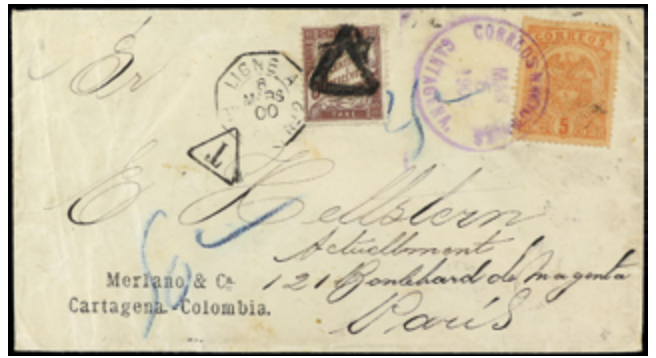 LIGNE A
8
MARS
00
TAXE
CORREOS N
CARTAGENA.
MAR
CORREOS
5
T
E Hellstern
Actuellment
121 Boulehard de Magenta
París
Merlano & Ca.
Cartagena.-Colombia.